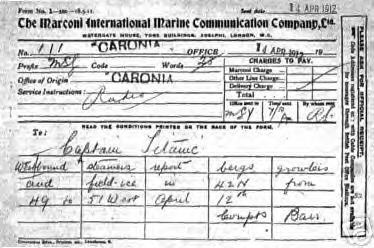 Form No. 1—100—18.5.11.
Sent date
14 APR 1912
The Marconi International Marine Communication Company, Ltd.
WATERGATE HOUSE, YORK BUILDINGS, ADELPHI, LONDON, W.C.
No. 111 "CARONIA" OFFICE 14 APR 1912 19
Prefix MSG Code Words 28
CHARGES TO PAY.
Office of Origin "CARONIA"
Marconi Charge
Other Line Charge
Delivery Charge
Total
Service Instructions: Radio
Office sent to
Time sent
By whom sent
MSY
READ THE CONDITIONS PRINTED ON THE BACK OF THE FORM.
To: Captain Titanic
Westbound steamers report bergs growlers
and field-ice in 42N from
49 to 51 West April 12th
Compts Barr.
PLEASE ASK FOR OFFICIAL RECEIPT.